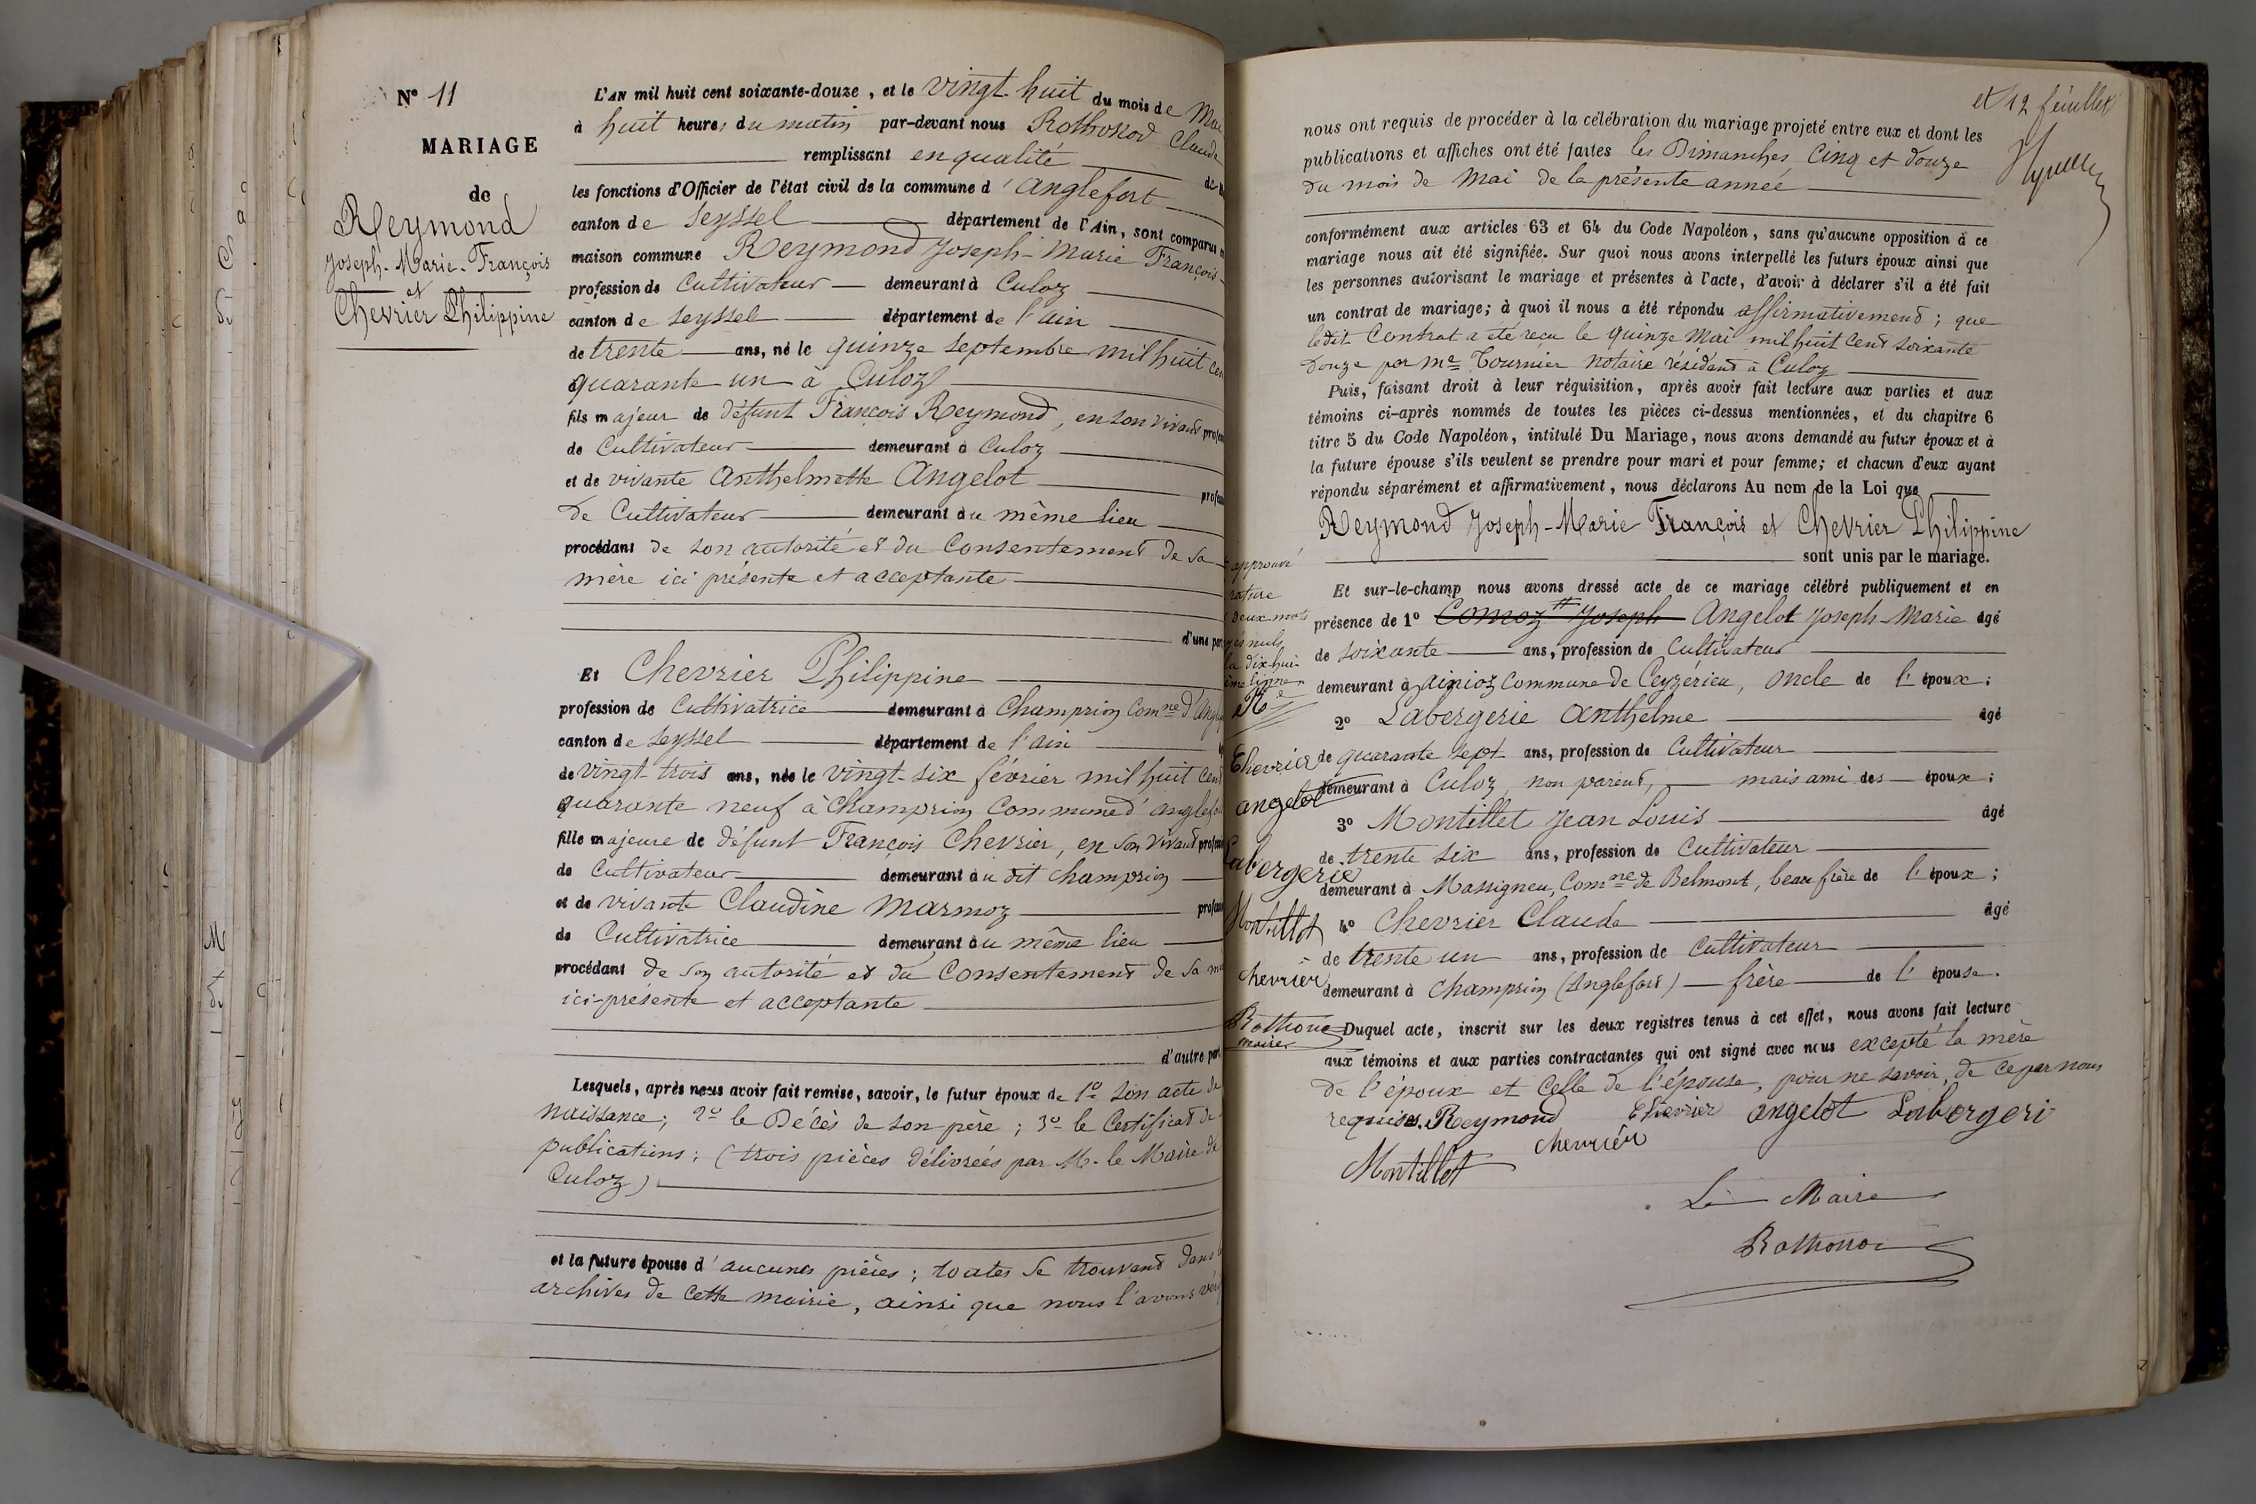 N° 11
MARIAGE
de
Reymond
Joseph-Marie-François
et
Chevrier Philippine
L'AN mil huit cent soixante-douze, et le vingt-huit du mois de Mai
à huit heures du matin par-devant nous Rothonod Claude
remplissant en qualité de
les fonctions d'Officier de l'état civil de la commune d'anglefort
canton de Seyssel département de l'Ain, sont comparus
maison commune Reymond Joseph-Marie François
profession de Cultivateur demeurant à Culoz
canton de Seyssel département de l'ain
de trente ans, né le quinze Septembre mil huit cen
quarante un à Culoz
fils majeur de défunt François Reymond, en son vivant profes
de Cultivateur demeurant à Culoz
et de vivante Anthelmette Angelot profes
de Cultivateur demeurant au même lieu
procédant de son autorité et du Consentement de sa
mère ici présente et acceptante
d'une par
Et Chevrier Philippine
profession de Cultivatrice demeurant à Champrion Comne d'Angl
canton de Seyssel département de l'ain
de vingt-trois ans, née le vingt-six février mil huit cent
quarante neuf à Champrion Commune d'anglefo
fille majeure de défunt François Chevrier, en son vivant profes
de Cultivateur demeurant au dit champrion
et de vivante Claudine Marmoz profes
de Cultivatrice demeurant au même lieu
procédant de son autorité et du Consentement de sa m
ici-présente et acceptante
d'autre part
Lesquels, après nous avoir fait remise, savoir, le futur époux de 1° son acte de
naissance; 2° le Décès de son père; 3° le Certificat de
publications; (trois pièces délivrées par M. le Maire de
Culoz)
et la future épouse d'aucunes pièces; toutes se trouvant dans l
archives de cette mairie, ainsi que nous l'avons véri
et 12 feuillet
nous ont requis de procéder à la célébration du mariage projeté entre eux et dont les
publications et affiches ont été faites les Dimanches Cinq et douze
du mois de Mai de la présente année
conformément aux articles 63 et 64 du Code Napoléon, sans qu'aucune opposition à ce
mariage nous ait été signifiée. Sur quoi nous avons interpellé les futurs époux ainsi que
les personnes autorisant le mariage et présentes à l'acte, d'avoir à déclarer s'il a été fait
un contrat de mariage; à quoi il nous a été répondu affirmativement; que
ledit Contrat a été reçu le quinze Mai mil huit cent soixante
douze par Me Tournier notaire résidant à Culoz
Puis, faisant droit à leur réquisition, après avoir fait lecture aux parties et aux
témoins ci-après nommés de toutes les pièces ci-dessus mentionnées, et du chapitre 6
titre 5 du Code Napoléon, intitulé Du Mariage, nous avons demandé au futur époux et à
la future épouse s'ils veulent se prendre pour mari et pour femme; et chacun d'eux ayant
répondu séparément et affirmativement, nous déclarons Au nom de la Loi que
Reymond Joseph-Marie François et Chevrier Philippine
sont unis par le mariage.
Et sur-le-champ nous avons dressé acte de ce mariage célébré publiquement et en
présence de 1° Comoz Joseph Angelot Joseph-Marie âgé
de soixante ans, profession de Cultivateur
demeurant à aignoz Commune de Ceyzérieu, oncle de l'époux;
2° Labergerie Anthelme âgé
de quarante sept ans, profession de Cultivateur
demeurant à Culoz, non parent, mais ami des époux;
3° Montillet Jean Louis âgé
de trente six ans, profession de Cultivateur
demeurant à Massigneu, Comne de Belmont, beau frère de l'époux;
4° Chevrier Claude âgé
de trente un ans, profession de Cultivateur
demeurant à Champrion (Anglefort) frère de l'épouse.
Duquel acte, inscrit sur les deux registres tenus à cet effet, nous avons fait lecture
aux témoins et aux parties contractantes qui ont signé avec nous excepté la mère
de l'époux et Celle de l'épouse, pour ne savoir, de ce par nous
requises. Reymond Chevrier angelot Labergeri
Montillet chevrier
Le Maire
Rothonod
approuvé
rature
deux mots
nuls
la dix-hui-
ème ligne
Chevrier
angelot
Labergerie
Montillet
chevrier
Rothono
maire